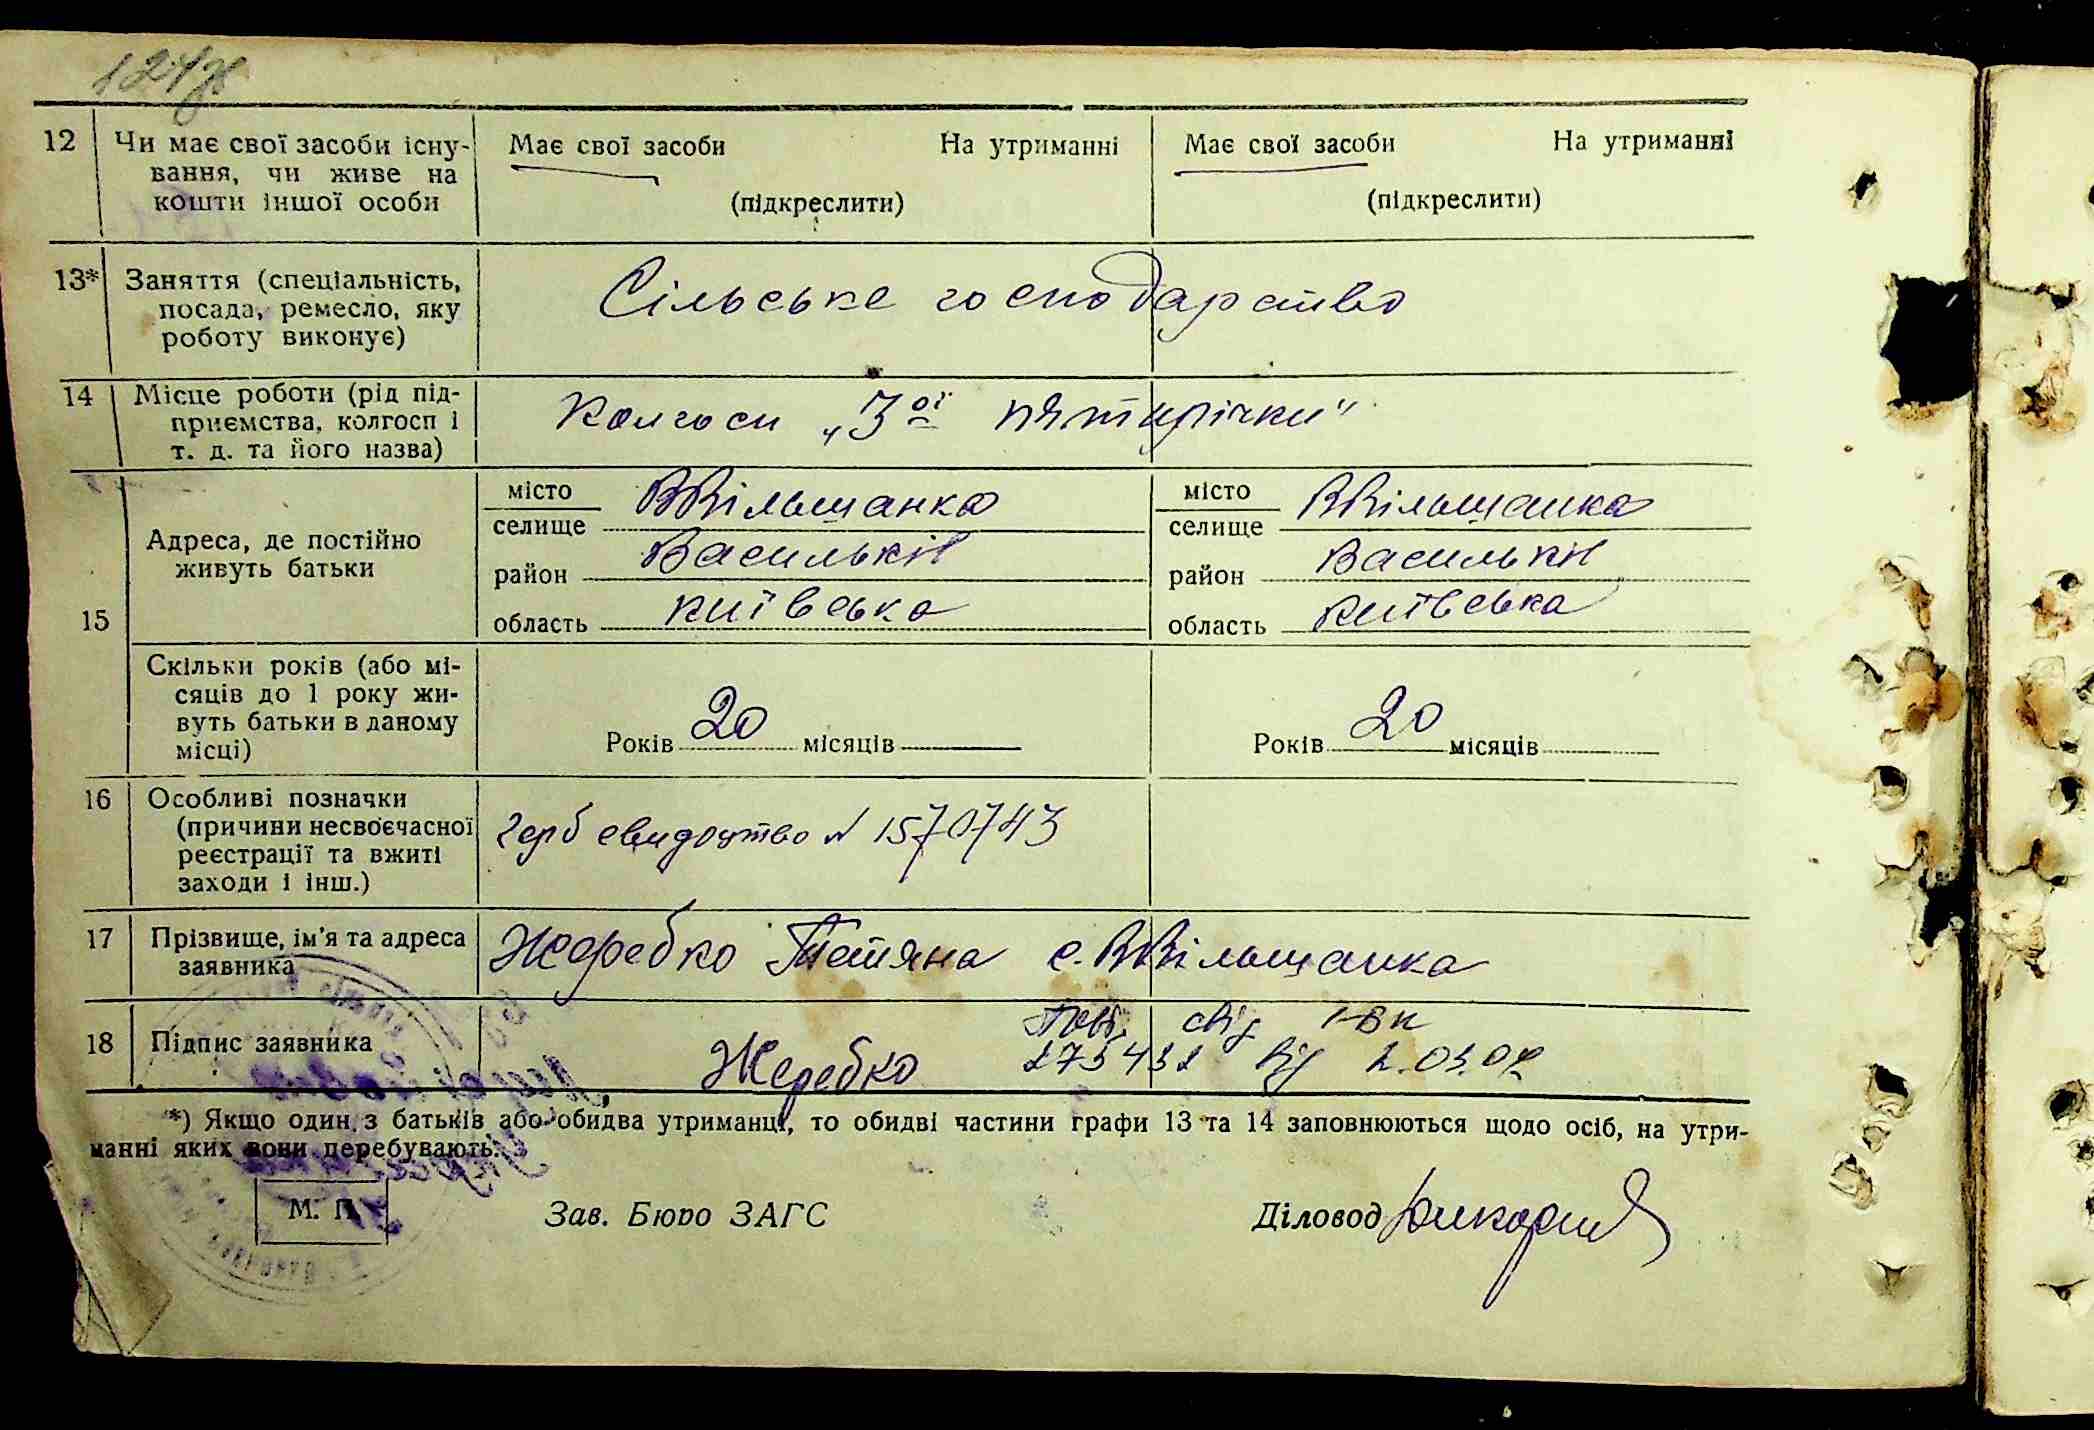 12 Чи має свої засоби існу- Має свої засоби На утриманні Має свої засоби На утриманні
вання, чи живе на
кошти іншої особи (підкреслити) (підкреслити)
13* Заняття (спеціальність,
посада, ремесло, яку Сільське господарство
роботу виконує)
14 Місце роботи (рід під-
приємства, колгосп і Колгосп „3ої пятирічки"
т. д. та його назва)
15
Адреса, де постійно
живуть батьки
місто
селище ВВільшанка
район Васильків
область Київська
місто
селище ВВільшанка
район Васильків
область Київська
Скільки років (або мі-
сяців до 1 року жи-
вуть батьки в даному
місці)
Років 20 місяців
Років 20 місяців
16 Особливі позначки
(причини несвоєчасної
реєстрації та вжиті
заходи і інш.)
герб свидоцтво N 1570743
17 Прізвище, ім'я та адреса
заявника
Жеребко Тетяна с. ВВільшанка
18 Підпис заявника
Жеребко
Повт. свід I-БК
273432 від
*) Якщо один з батьків або обидва утриманці, то обидві частини графи 13 та 14 заповнюються щодо осіб, на утри-
манні яких вони перебувають.
М. П. Зав. Бюро ЗАГС Діловод